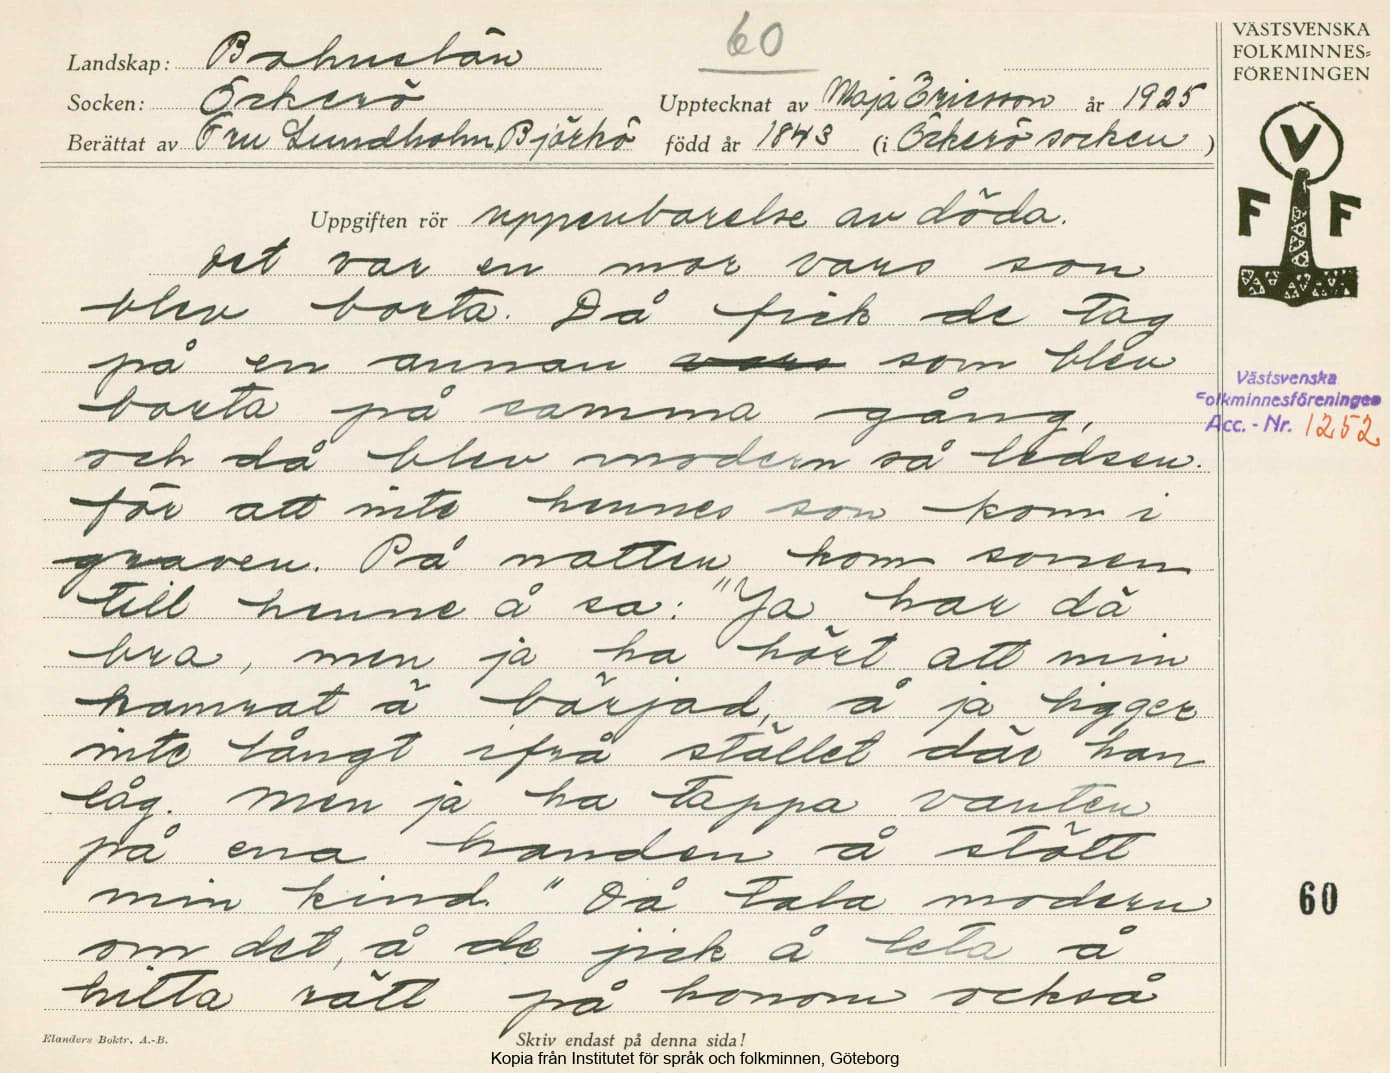 60
Landskap: Bohuslän
Socken: Öckerö
Upptecknat av Maja Ericsson år 1925
Berättat av Fru Lundholm, Björkö född år 1843 (i Öckerö socken)
VÄSTSVENSKA
FOLKMINNES=
FÖRENINGEN
V
F F
Uppgiften rör uppenbarelse av döda.
Det var en mor vars son
blev borta. Då fick de tag
på en annan vars som blev
borta på samma gång,
och då blev modern så ledsen.
för att inte hennes son kom i
graven. På natten kom sonen
till henne å sa: "Ja har dä
bra, men ja ha hört att min
kamrat ä bärjad, å ja ligger
inte långt ifrå stället där han
låg. Men ja ha tappa vanten
på ena handen å stött
min kind." Då tala modern
om det, å de jick å leta å
hitta rätt på honom också
Västsvenska
Folkminnesföreningen
Acc. - Nr. 1252
60
Elanders Boktr. A.-B.
Skriv endast på denna sida!
Kopia från Institutet för språk och folkminnen, Göteborg